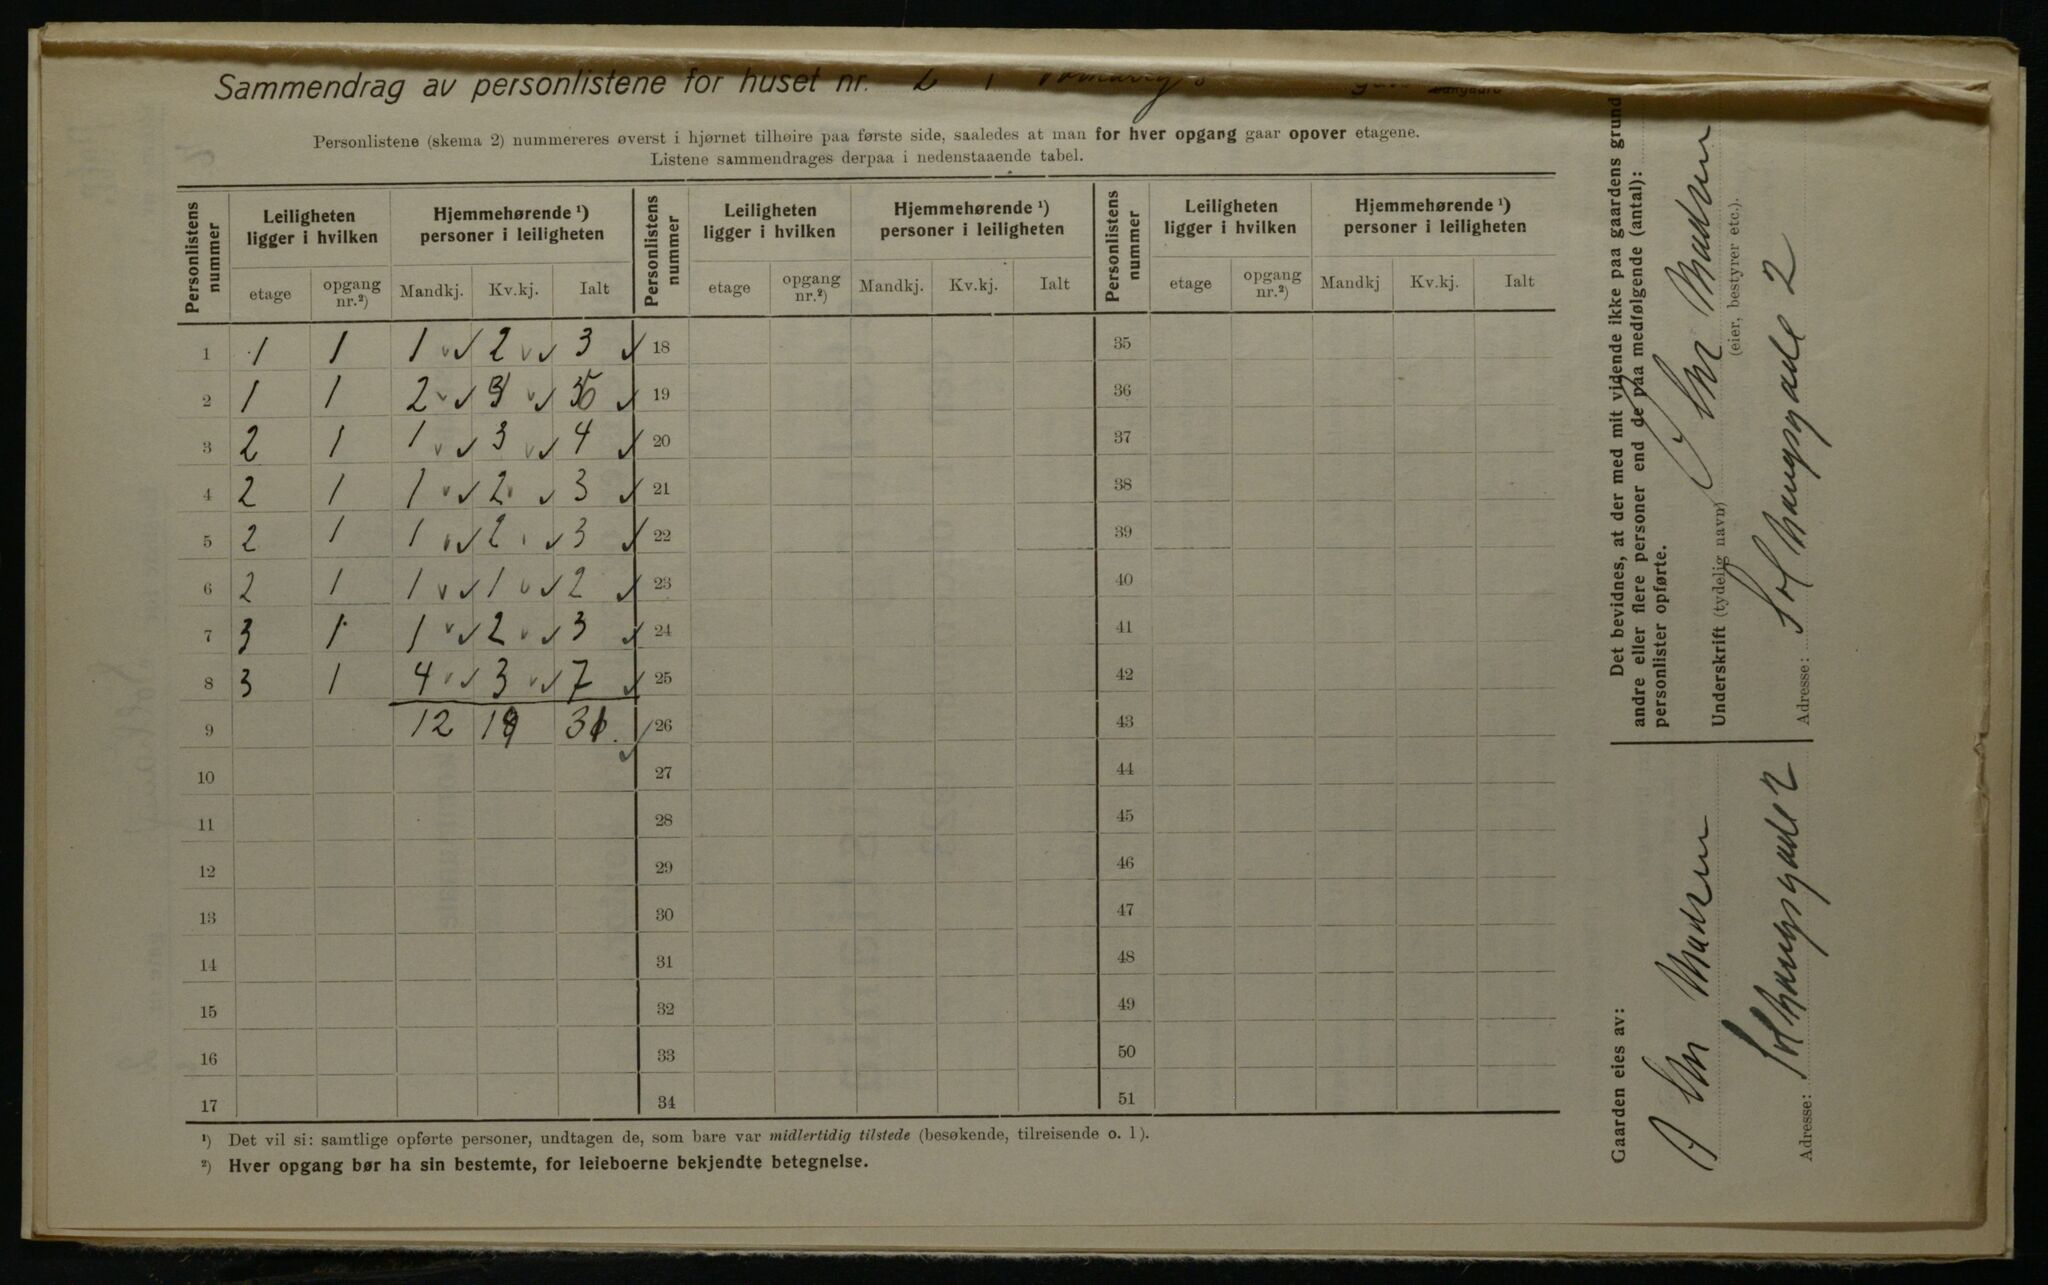 Sammendrag av personlistene for huset nr. 2 i
Personlistene (skema 2) nummereres øverst i hjørnet tilhøire paa første side, saaledes at man for hver opgang gaar opover etagene.
Listene sammendrages derpaa i nedenstaaende tabel.
Personlistens nummer | Leiligheten ligger i hvilken | Hjemmehørende ¹) personer i leiligheten | Personlistens nummer | Leiligheten ligger i hvilken | Hjemmehørende ¹) personer i leiligheten | Personlistens nummer | Leiligheten ligger i hvilken | Hjemmehørende ¹) personer i leiligheten
etage | opgang nr.²) | Mandkj. | Kv.kj. | Ialt | etage | opgang nr.²) | Mandkj. | Kv.kj. | Ialt | etage | opgang nr.²) | Mandkj | Kv.kj. | Ialt
1 | 1 | 1 | 1 | 2 | 3 | 18 | 35
2 | 1 | 1 | 2 | 19 | 36
3 | 2 | 1 | 1 | 3 | 4 | 20 | 37
4 | 2 | 1 | 1 | 2 | 3 | 21 | 38
5 | 2 | 1 | 1 | 2 | 3 | 22 | 39
6 | 2 | 1 | 1 | 1 | 2 | 23 | 40
7 | 3 | 1 | 1 | 2 | 3 | 24 | 41
8 | 3 | 1 | 4 | 3 | 7 | 25 | 42
9 | 12 | 26 | 43
10 | 27 | 44
11 | 28 | 45
12 | 29 | 46
13 | 30 | 47
14 | 31 | 48
15 | 32 | 49
16 | 33 | 50
17 | 34 | 51
¹) Det vil si: samtlige opførte personer, undtagen de, som bare var midlertidig tilstede (besøkende, tilreisende o. l).
²) Hver opgang bør ha sin bestemte, for leieboerne bekjendte betegnelse.
Det bevidnes, at der med mit vidende ikke paa gaardens grund
andre eller flere personer end de paa medfølgende (antal):
personlister opførte.
Underskrift (tydelig navn) Chr Madsen
(eier, bestyrer etc.).
Adresse: Solhaugsgade 2
Gaarden eies av:
A Chr Madsen
Adresse: Solhaugsgade 2